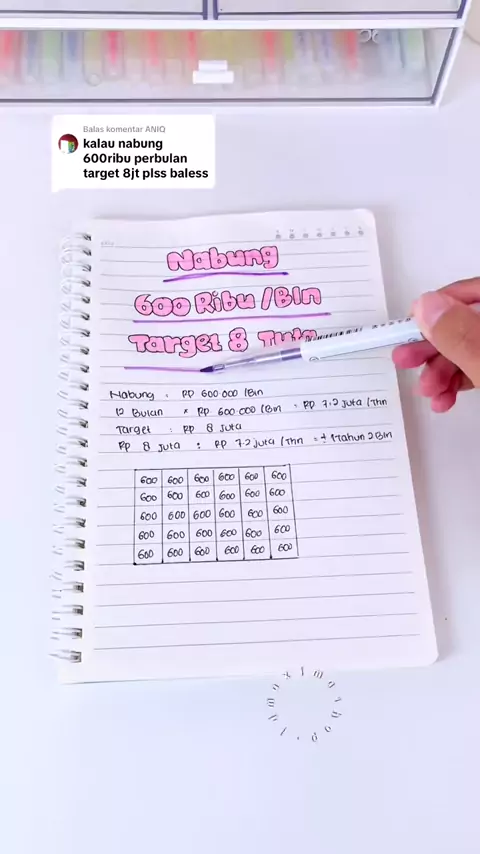 Balas komentar ANIQ
kalau nabung
600ribu perbulan
target 8jt plss baless
Nabung
600 Ribu /Bln
Target 8 Juta
Nabung : Rp 600.000 /Bln
12 Bulan × Rp 600.000 /Bln = Rp 7.2 Juta /Thn
Target : Rp 8 Juta
Rp 8 Juta : Rp 7.2 Juta /Thn = ± 1 Tahun 2 Bln
600 600 600 600 600 600
600 600 600 600 600 600
600 600 600 600 600 600
600 600 600 600 600 600
600 600 600 600 600 600